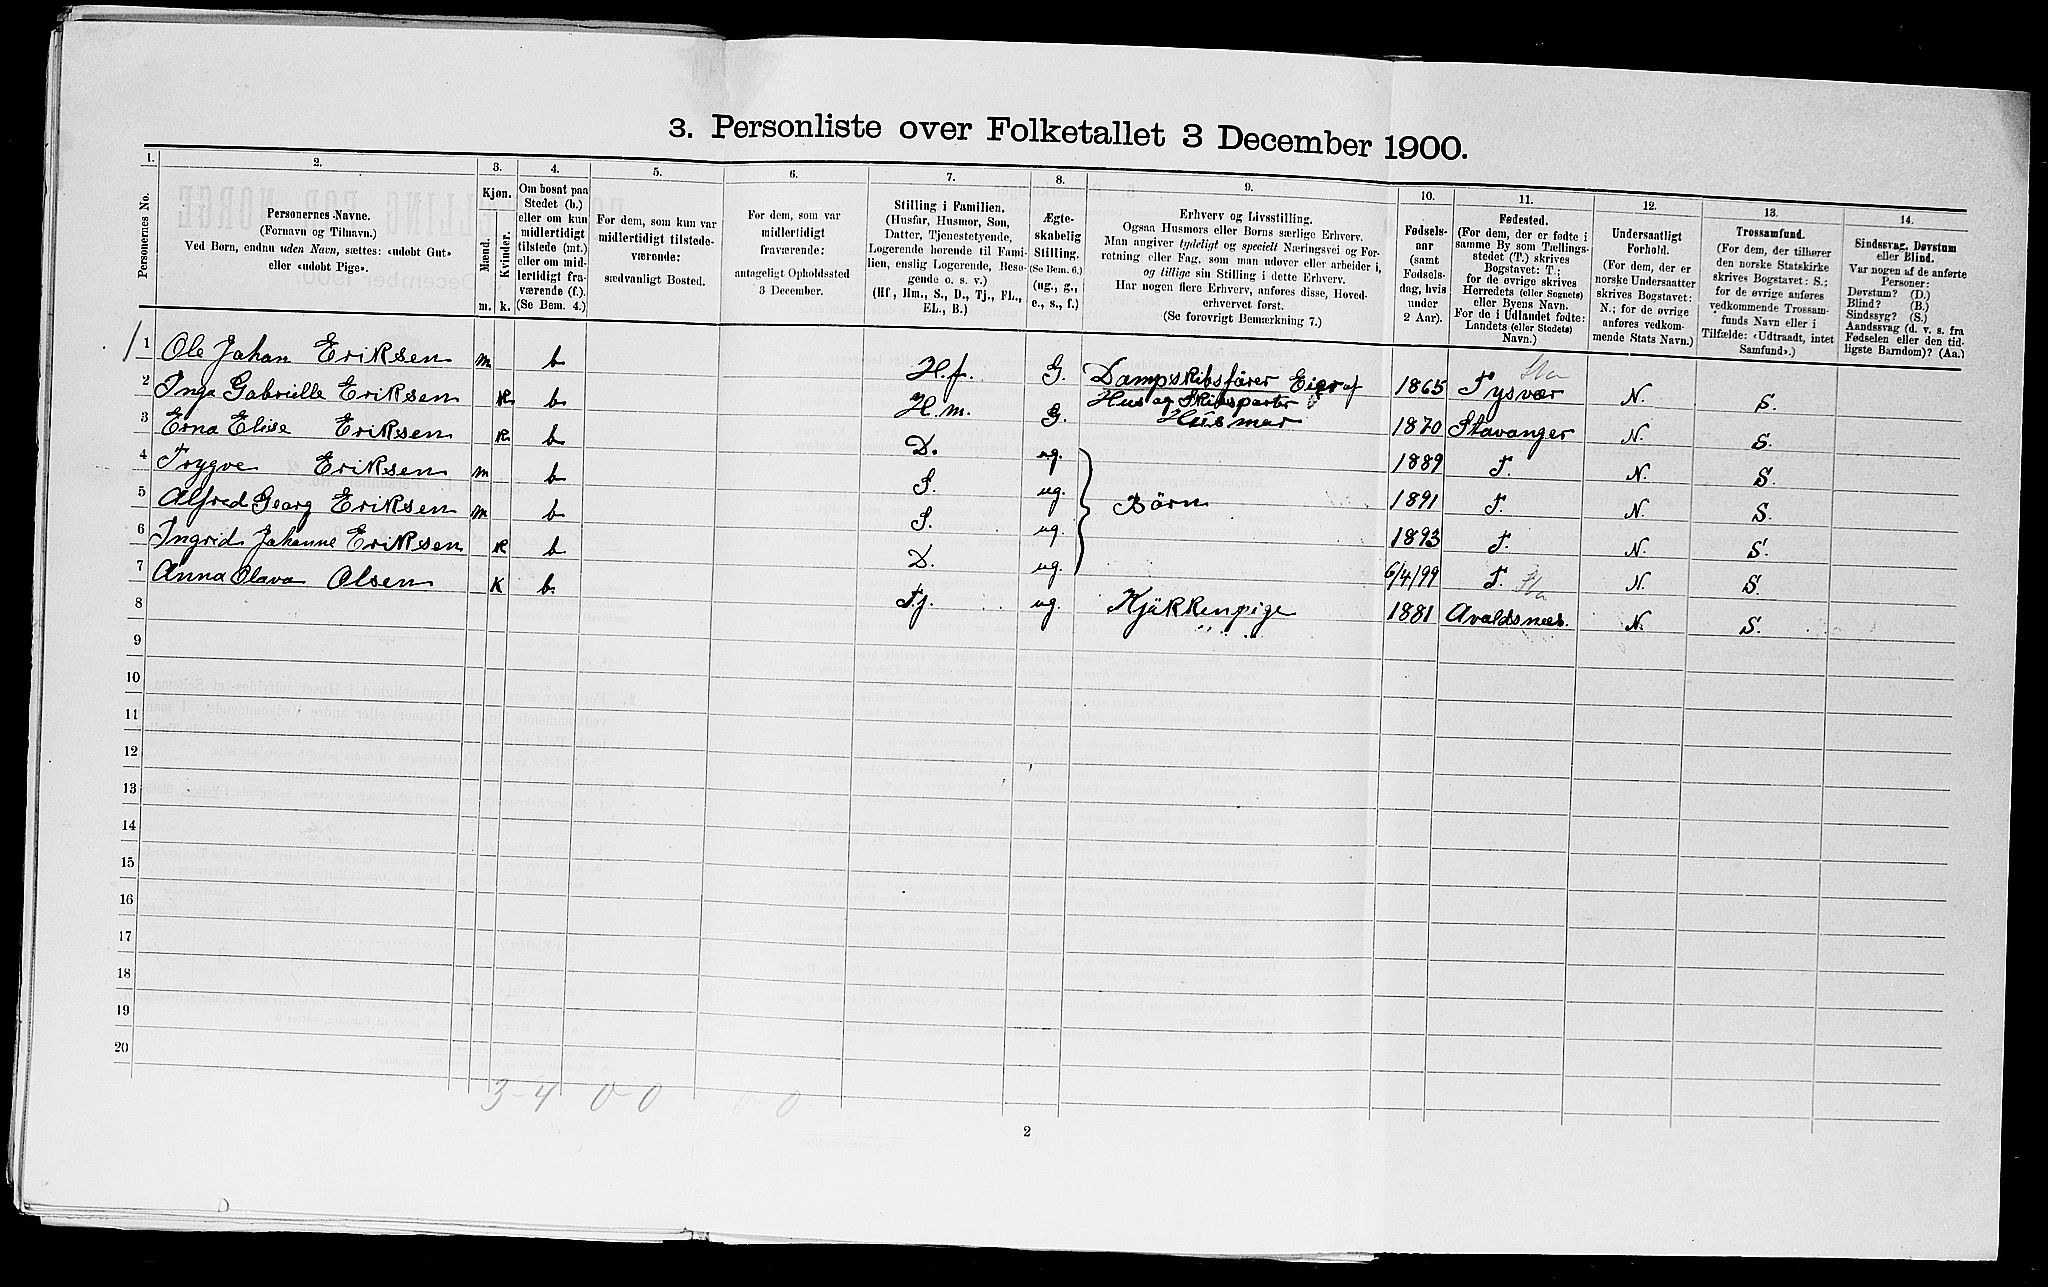 3. Personliste over Folketallet 3 December 1900.
1. 2. 3. 4. 5. 6. 7. 8. 9. 10. 11. 12. 13. 14.
Personernes No.
Personernes Navne.
(Fornavn og Tilnavn.)
Ved Børn, endnu uden Navn, sættes: «udøbt Gut»
eller «udøbt Pige».
Kjøn.
Mænd.
Kvinder.
m. k.
Om bosat paa
Stedet (b.)
eller om kun
midlertidigt
tilstede (mt.)
eller om mid-
lertidigt fra-
værende (f.).
(Se Bem. 4.)
For dem, som kun var
midlertidigt tilstede-
værende:
sædvanligt Bosted.
For dem, som var
midlertidigt
fraværende:
antageligt Opholdssted
3 December.
Stilling i Familien.
(Husfar, Husmor, Søn,
Datter, Tjenestetyende,
Logerende hørende til Fami-
lien, enslig Logerende, Besø-
gende o. s. v.)
(Hf., Hm., S., D., Tj., FL.,
EL., B.)
Ægte-
skabelig
Stilling.
(Se Bem. 6.)
(ug., g.,
e., s., f.)
Erhverv og Livsstilling.
Ogsaa Husmors eller Børns særlige Erhverv.
Man angiver tydeligt og specielt Næringsvei og For-
retning eller Fag, som man udøver eller arbeider i,
og tillige sin Stilling i dette Erhverv.
Har nogen flere Erhverv, anføres disse, Hoved-
erhvervet først.
(Se forøvrigt Bemærkning 7.)
Fødsels-
aar
(samt
Fødsels-
dag, hvis
under
2 Aar).
Fødested.
(For dem, der er fødte i
samme By som Tællings-
stedet (T.) skrives
Bogstavet: T.;
for de øvrige skrives
Herredets (eller Sognets)
eller Byens Navn.
For de i Udlandet fødte:
Landets (eller Stedets)
Navn.)
Undersaatligt
Forhold.
(For dem, der er
norske Undersaatter
skrives Bogstavet:
N.; for de øvrige
anføres vedkom-
mende Stats Navn.)
Trossamfund.
(For dem, der tilhører
den norske Statskirke
skrives Bogstavet: S.;
for de øvrige anføres
vedkommende Trossam-
funds Navn eller i
Tilfælde: «Udtraadt, intet
Samfund».)
Sindssvag, Døvstum
eller Blind.
Var nogen af de anførte
Personer:
Døvstum? (D.)
Blind? (B.)
Sindssyg? (S.)
Aandssvag (d. v. s. fra
Fødselen eller den tid-
ligste Barndom)? (Aa.)
1 Ole Johan Eriksen m b H.f. G. Dampskibsfører Eier af Hus og Skibsparter 1865 Tysvær Sta N. S.
2 Inga Gabrielle Eriksen K b H.m. G. Husmor 1870 Stavanger N. S.
3 Erna Elise Eriksen K b D. ug. 1889 T. N. S.
4 Trygve Eriksen m b S. ug. Börn 1891 T. N. S.
5 Alfred Georg Eriksen m b S. ug. 1893 T. N. S.
6 Ingrid Johanne Eriksen K b D. ug. 6/4/99 T. N. S.
7 Anna Olava Olsen K b. Tj. ug. Kjökkenpige 1881 Avaldsnes. Sta N. S.
8
9
10
11
12
13
14
15
16
17
18
19
20
3-4 0-0 0-0
2